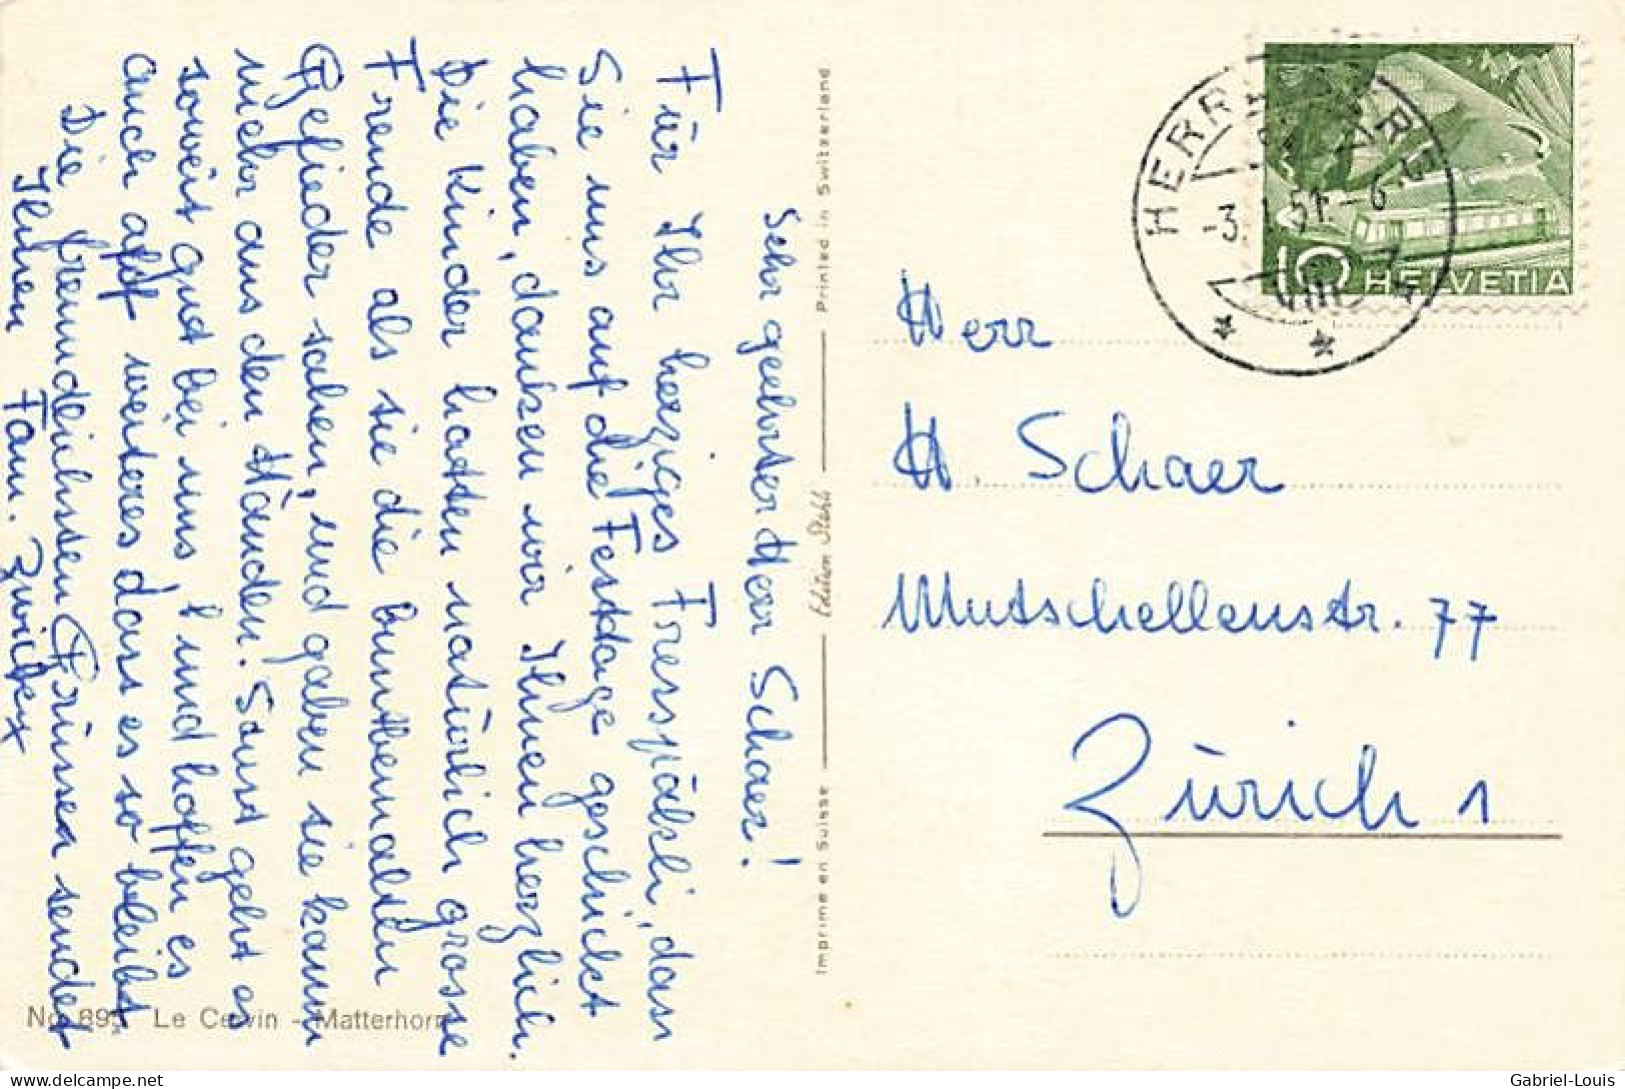 Sehr geehrter Herr Schaer!
Für Ihr herziges Fresspäckli, dass
Sie uns auf die Festtage geschickt
haben, danken wir Ihnen herzlich.
Die Kinder hatten natürlich grosse
Freude als sie die buntbemalten
Gefieder sahen, und gaben sie kaum
mehr aus den Händen. Sonst geht es
soweit gut bei uns, und hoffen es
auch weiteres dass es so bleibt
Die freundlichsten Grüssen sendet
Ihnen Fam. Zwicky
Imprimé en Suisse
Edition Stehli
Printed in Switzerland
No 895 Le Cervin - Matterhorn
HERRLIBERG
-3. 51 -6
VIII
10 HELVETIA
Herr
H. Schaer
Mutschellenstr. 77
Zürich 1
delcampe.net
Gabriel-Louis